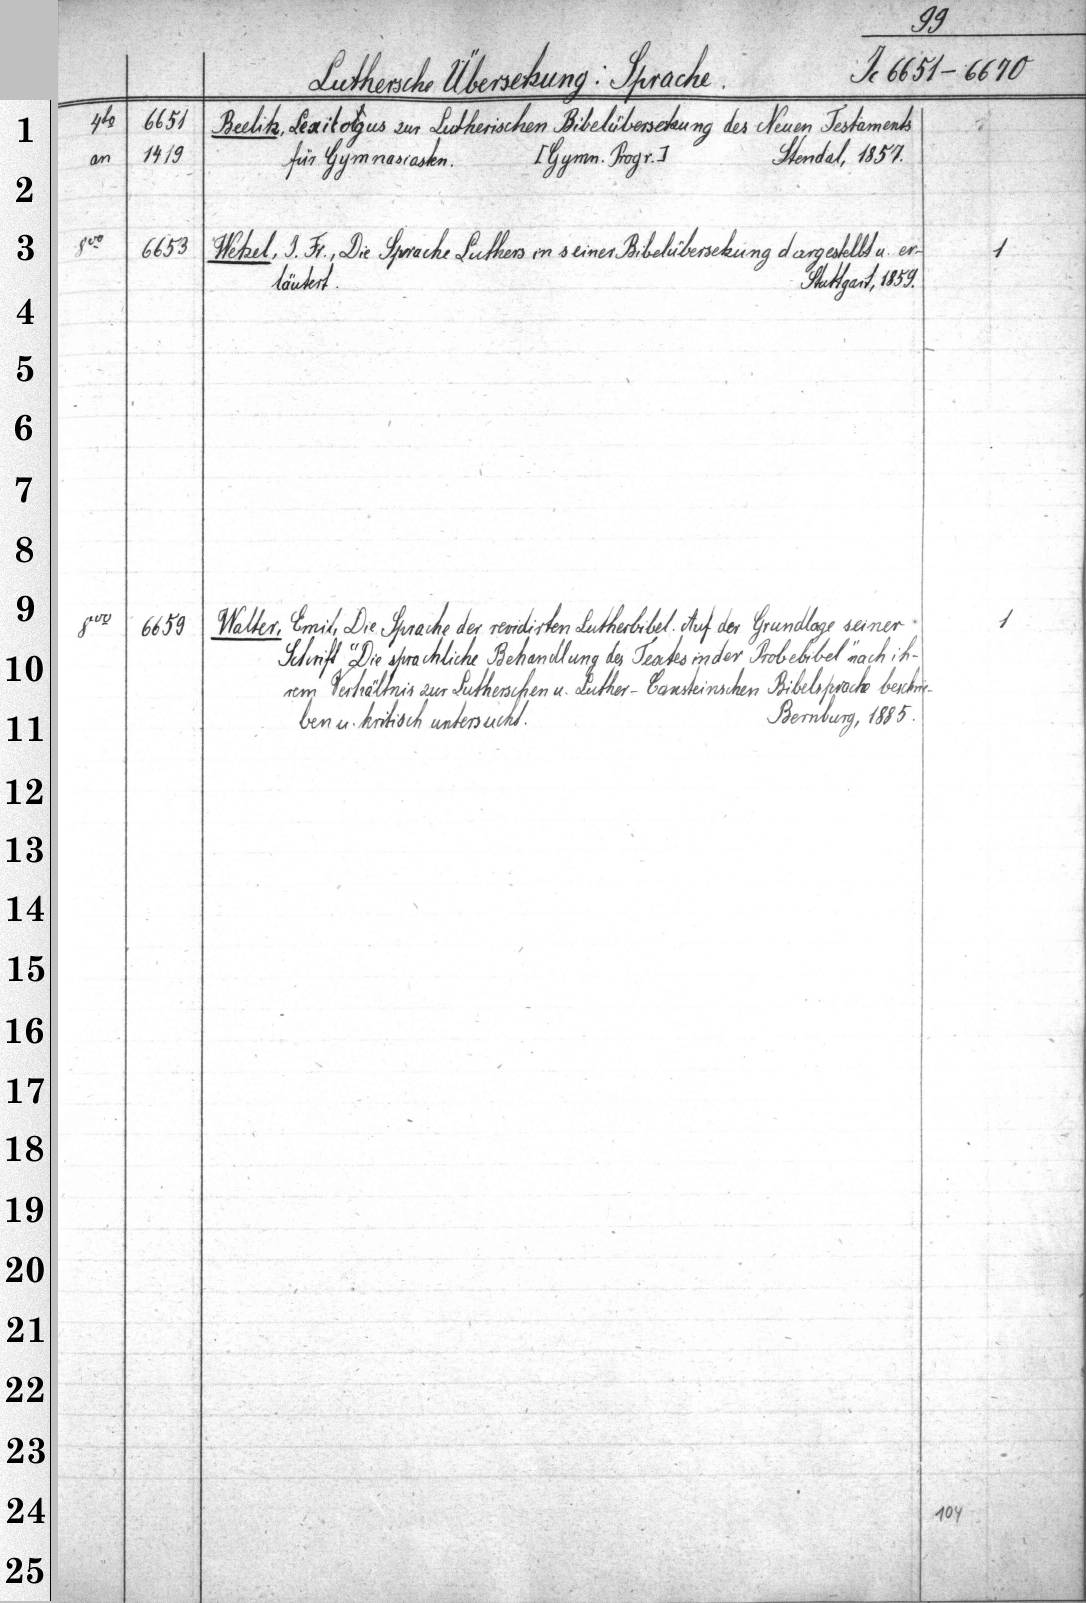 99
Luthersche Übersetzung: Sprache. Ic 6651-6670
1 4to 6651 Beelitz, Lexilogus zur Lutherischen Bibelübersetzung des Neuen Testaments
an 1419 für Gymnasiasten. [Gymn. Progr.] Stendal, 1857.
2
3 8vo 6653 Wetzel, I. Fr., Die Sprache Luthers in seiner Bibelübersetzung dargestellt u. er- 1
läutert. Stuttgart, 1859.
4
5
6
7
8
9 8vo 6659 Walter, Emil, Die Sprache der revidirten Lutherbibel. Auf der Grundlage seiner 1
10 Schrift "Die sprachliche Behandlung des Textes in der Probebibel" nach ih-
rem Verhältnis zur Lutherschen u. Luther-Cansteinschen Bibelsprache beschrie-
11 ben u. kritisch untersucht. Bernburg, 1885.
12
13
14
15
16
17
18
19
20
21
22
23
24 104
25